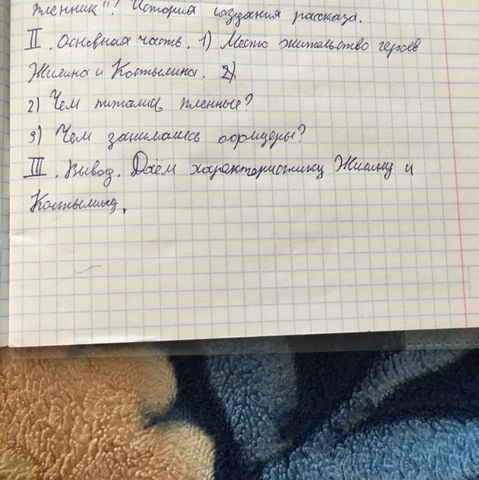 пленник"? История создания рассказа.
II. Основная часть. 1) Место жительство героев
Жилина и Костылина. 2)
2) Чем питались пленные?
3) Чем занимались офицеры?
III. Вывод. Даём характеристику Жилину и
Костылину.